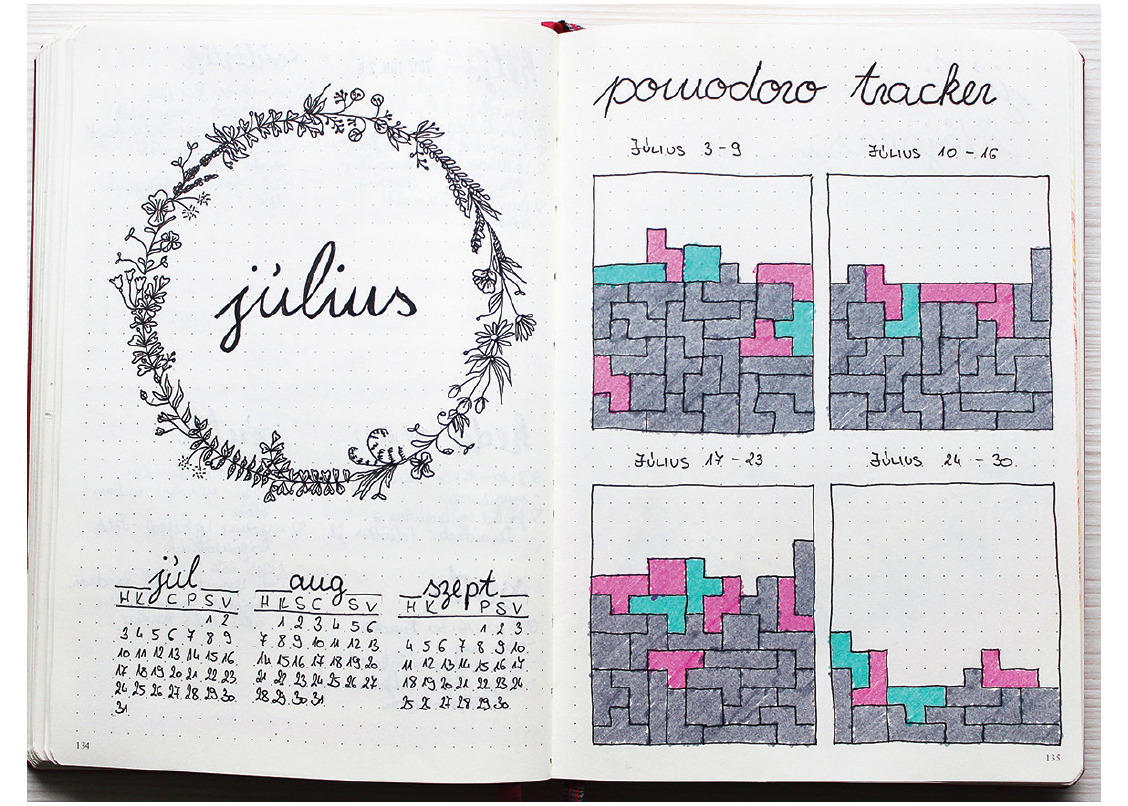 július
júl
H K C P S V
1 2
3 4 5 6 7 8 9
10 11 12 13 14 15 16
17 18 19 20 21 22 23
24 25 26 27 28 29 30
31
aug
H K S C S V
1 2 3 4 5 6
7 8 9 10 11 12 13
14 15 16 17 18 19 20
21 22 23 24 25 26 27
28 29 30 31
szept
H K P S V
1 2 3
4 5 6 7 8 9 10
11 12 13 14 15 16 17
18 19 20 21 22 23 24
25 26 27 28 29 30
134
pomodoro tracker
JÚLIUS 3-9
JÚLIUS 10-16
JÚLIUS 17-23
JÚLIUS 24-30.
135